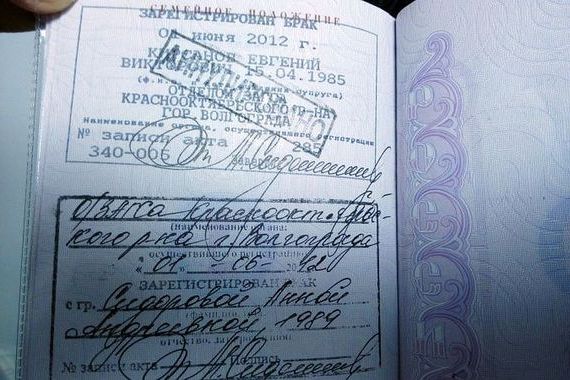 СЕМЕЙНОЕ ПОЛОЖЕНИЕ
ЗАРЕГИСТРИРОВАН БРАК
июня 2012 г.
ЕВГЕНИЙ
15.04.1985
супруга)
КРАСНООКТЯБРЬСКОГО Р-НА
ГОР. ВОЛГОГРАДА
Наименование органа, осуществившего регистрацию
№ записи акта 285
340-006
Краснооктябрьс-
кого р-на г. Волгограда
(наименование органа,
осуществившего регистрацию)
06
ЗАРЕГИСТРИРОВАН БРАК
с гр. Сидоровой Анной
Андреевной, 1989
отчество, дата рождения)
№ записи акта Подпись